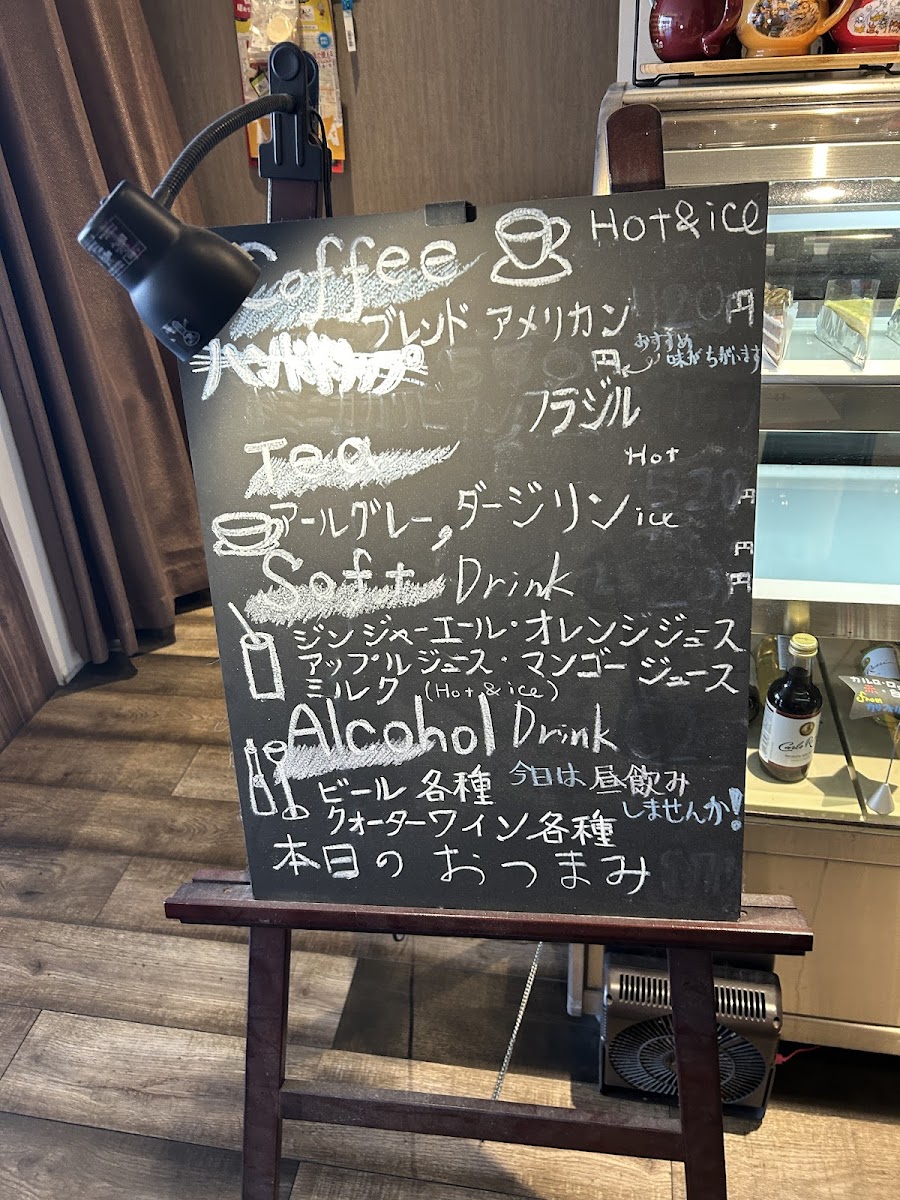 Coffee Hot&ice
ブレンド アメリカン 円
ハンドドリップ 円 おすすめ
味がちがいます
ブラジル
Tea Hot
円
アールグレー,ダージリン ice
円
Soft Drink 円
ジンジャーエール・オレンジジュース
アップルジュース・マンゴージュース
ミルク (Hot&ice)
Alcohol Drink
ビール 各種 今日は昼飲み
しませんか!
クォーターワイン各種
本日の おつまみ
Carlo R